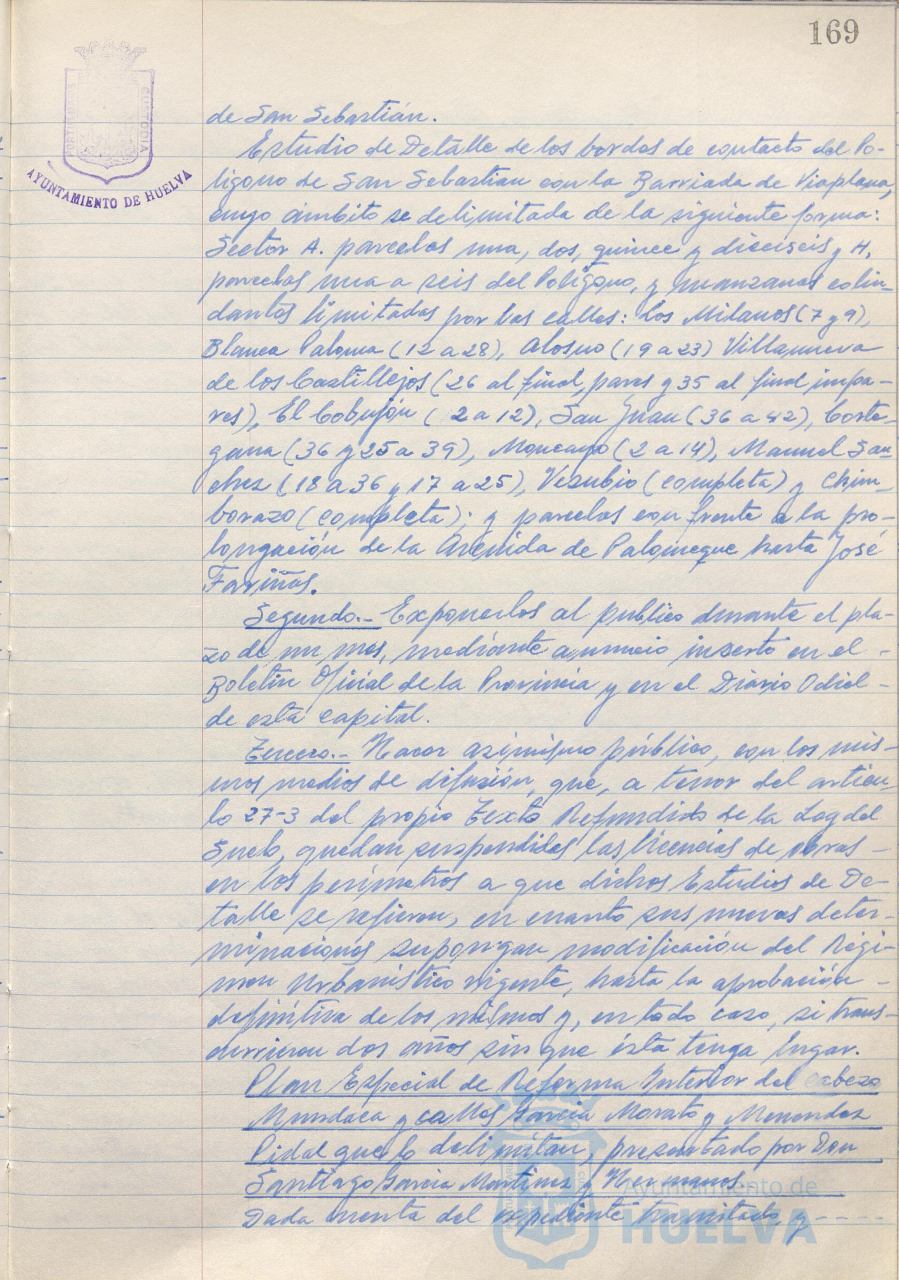 169
PORTUS MARIS
CUSTODIA
AYUNTAMIENTO DE HUELVA
de San Sebastián.
Estudio de Detalle de los bordes de contacto del Po-
lígono de San Sebastian con la Barriada de Viaplana,
cuyo ámbito se delimitada de la siguiente forma:
Sector A. parcelas una, dos, quince y dieciseis y H,
parcelas una a seis del Polígono, y manzanas colin-
dantes limitadas por las calles: Los Milanos (7 y 9),
Blanca Paloma (12 a 28), Alosno (19 a 23) Villanueva
de los Castillejos (26 al final, pares y 35 al final impa-
res), El Cobujón (2 a 12), San Juan (36 a 42), Corte-
gana (36 y 25 a 39), Moncayo (2 a 14), Manuel San-
chez (18 a 36 y 17 a 25), Vesubio (completa) y Chim-
borazo (completa); y parcelas con frente a la pro-
longación de la Avenida de Palomeque hasta José
Fariñas.
Segundo.- Exponerlos al publico durante el pla-
zo de un mes, mediante anuncio inserto en el -
Boletín Oficial de la Provincia y en el Diario Odiel -
de esta capital.
Tercero.- Hacer asimismo público, con los mis-
mos medios de difusión, que, a tenor del artícu-
lo 27-3 del propio Texto Refundido de la Ley del
Suelo, quedan suspendidas las licencias de obras -
en los perímetros a que dichos Estudios de De-
talle se refieren, en cuanto sus nuevas deter-
minaciones supongan modificación del Régi-
men Urbanístico vigente, hasta la aprobación -
definitiva de los mismos y, en todo caso, si trans-
currieron dos años sin que ésta tenga lugar.
Plan Especial de Reforma Interior del cabezo
Mundaca y calles Garcia Morato y Menendez
Pidal que lo delimitan, presentado por Don
Santiago Garcia Martinez y Hermanos.
Dada cuenta del expediente tramitado, y -----
Ayuntamiento de
HUELVA